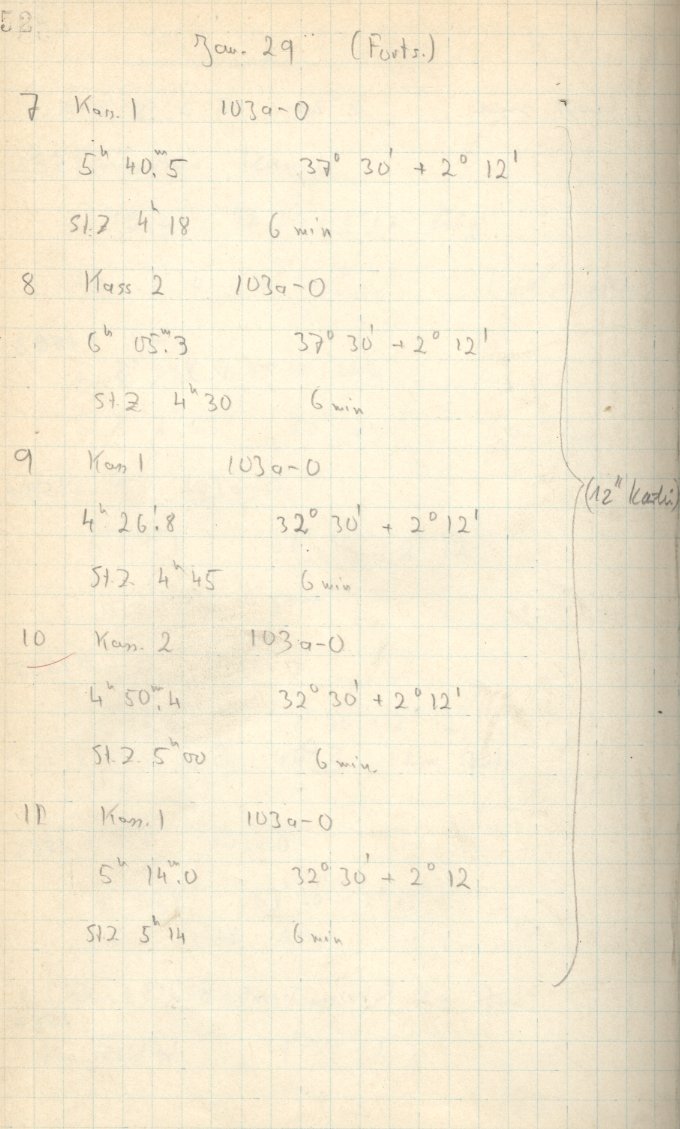 52
Jan. 29 (Forts.)
7 Kass. 1 103a-0
5ʰ 40ᵐ.5 37° 30' + 2° 12'
St.Z 4ʰ 18 6 min
8 Kass 2 103a-0
6ʰ 05ᵐ.3 37° 30' + 2° 12'
St.Z 4ʰ 30 6 min
9 Kass 1 103a-0
4ʰ 26'.8 32° 30' + 2° 12'
St.Z. 4ʰ 45 6 min
(12"
10 Kass. 2 103a-0
4ʰ 50ᵐ.4 32° 30' + 2° 12'
St.Z. 5ʰ 00 6 min.
11 Kass. 1 103a-0
5ʰ 14ᵐ.0 32° 30' + 2° 12
St.Z 5ʰ 14 6 min